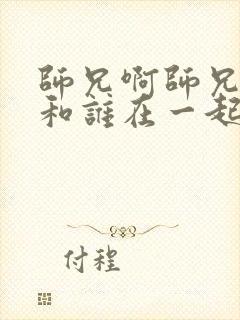 師兄啊師兄
和誰在一起
付程